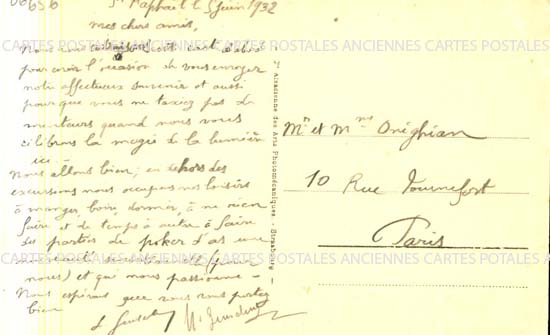 656
St Raphaël le 5 Juin 1932
mes chers amis,
Nous vous choisissons cet
pour avoir l'occasion de vous envoyer
notre affectueux souvenir et aussi
pour que vous ne taxiez pas de
menteurs quand nous vous
célébrons la magie de la lumière
ici.
Nous allons bien, en dehors des
excursions nous occupons nos loisirs
à manger, boire, dormir, à ne rien
faire et de temps à autre à faire
des parties de poker d'as une
(pour
nous) et qui nous passionne -
Nous espérons que vous vous portez
bien
CARTES POSTALES ANCIENNES CARTES POSTALES ANCIENNES CARTES POSTALES
Alsacienne des Arts Photomécaniques - Strasbourg
Mr et Mme Onighian
10 Rue Tournefort
Paris